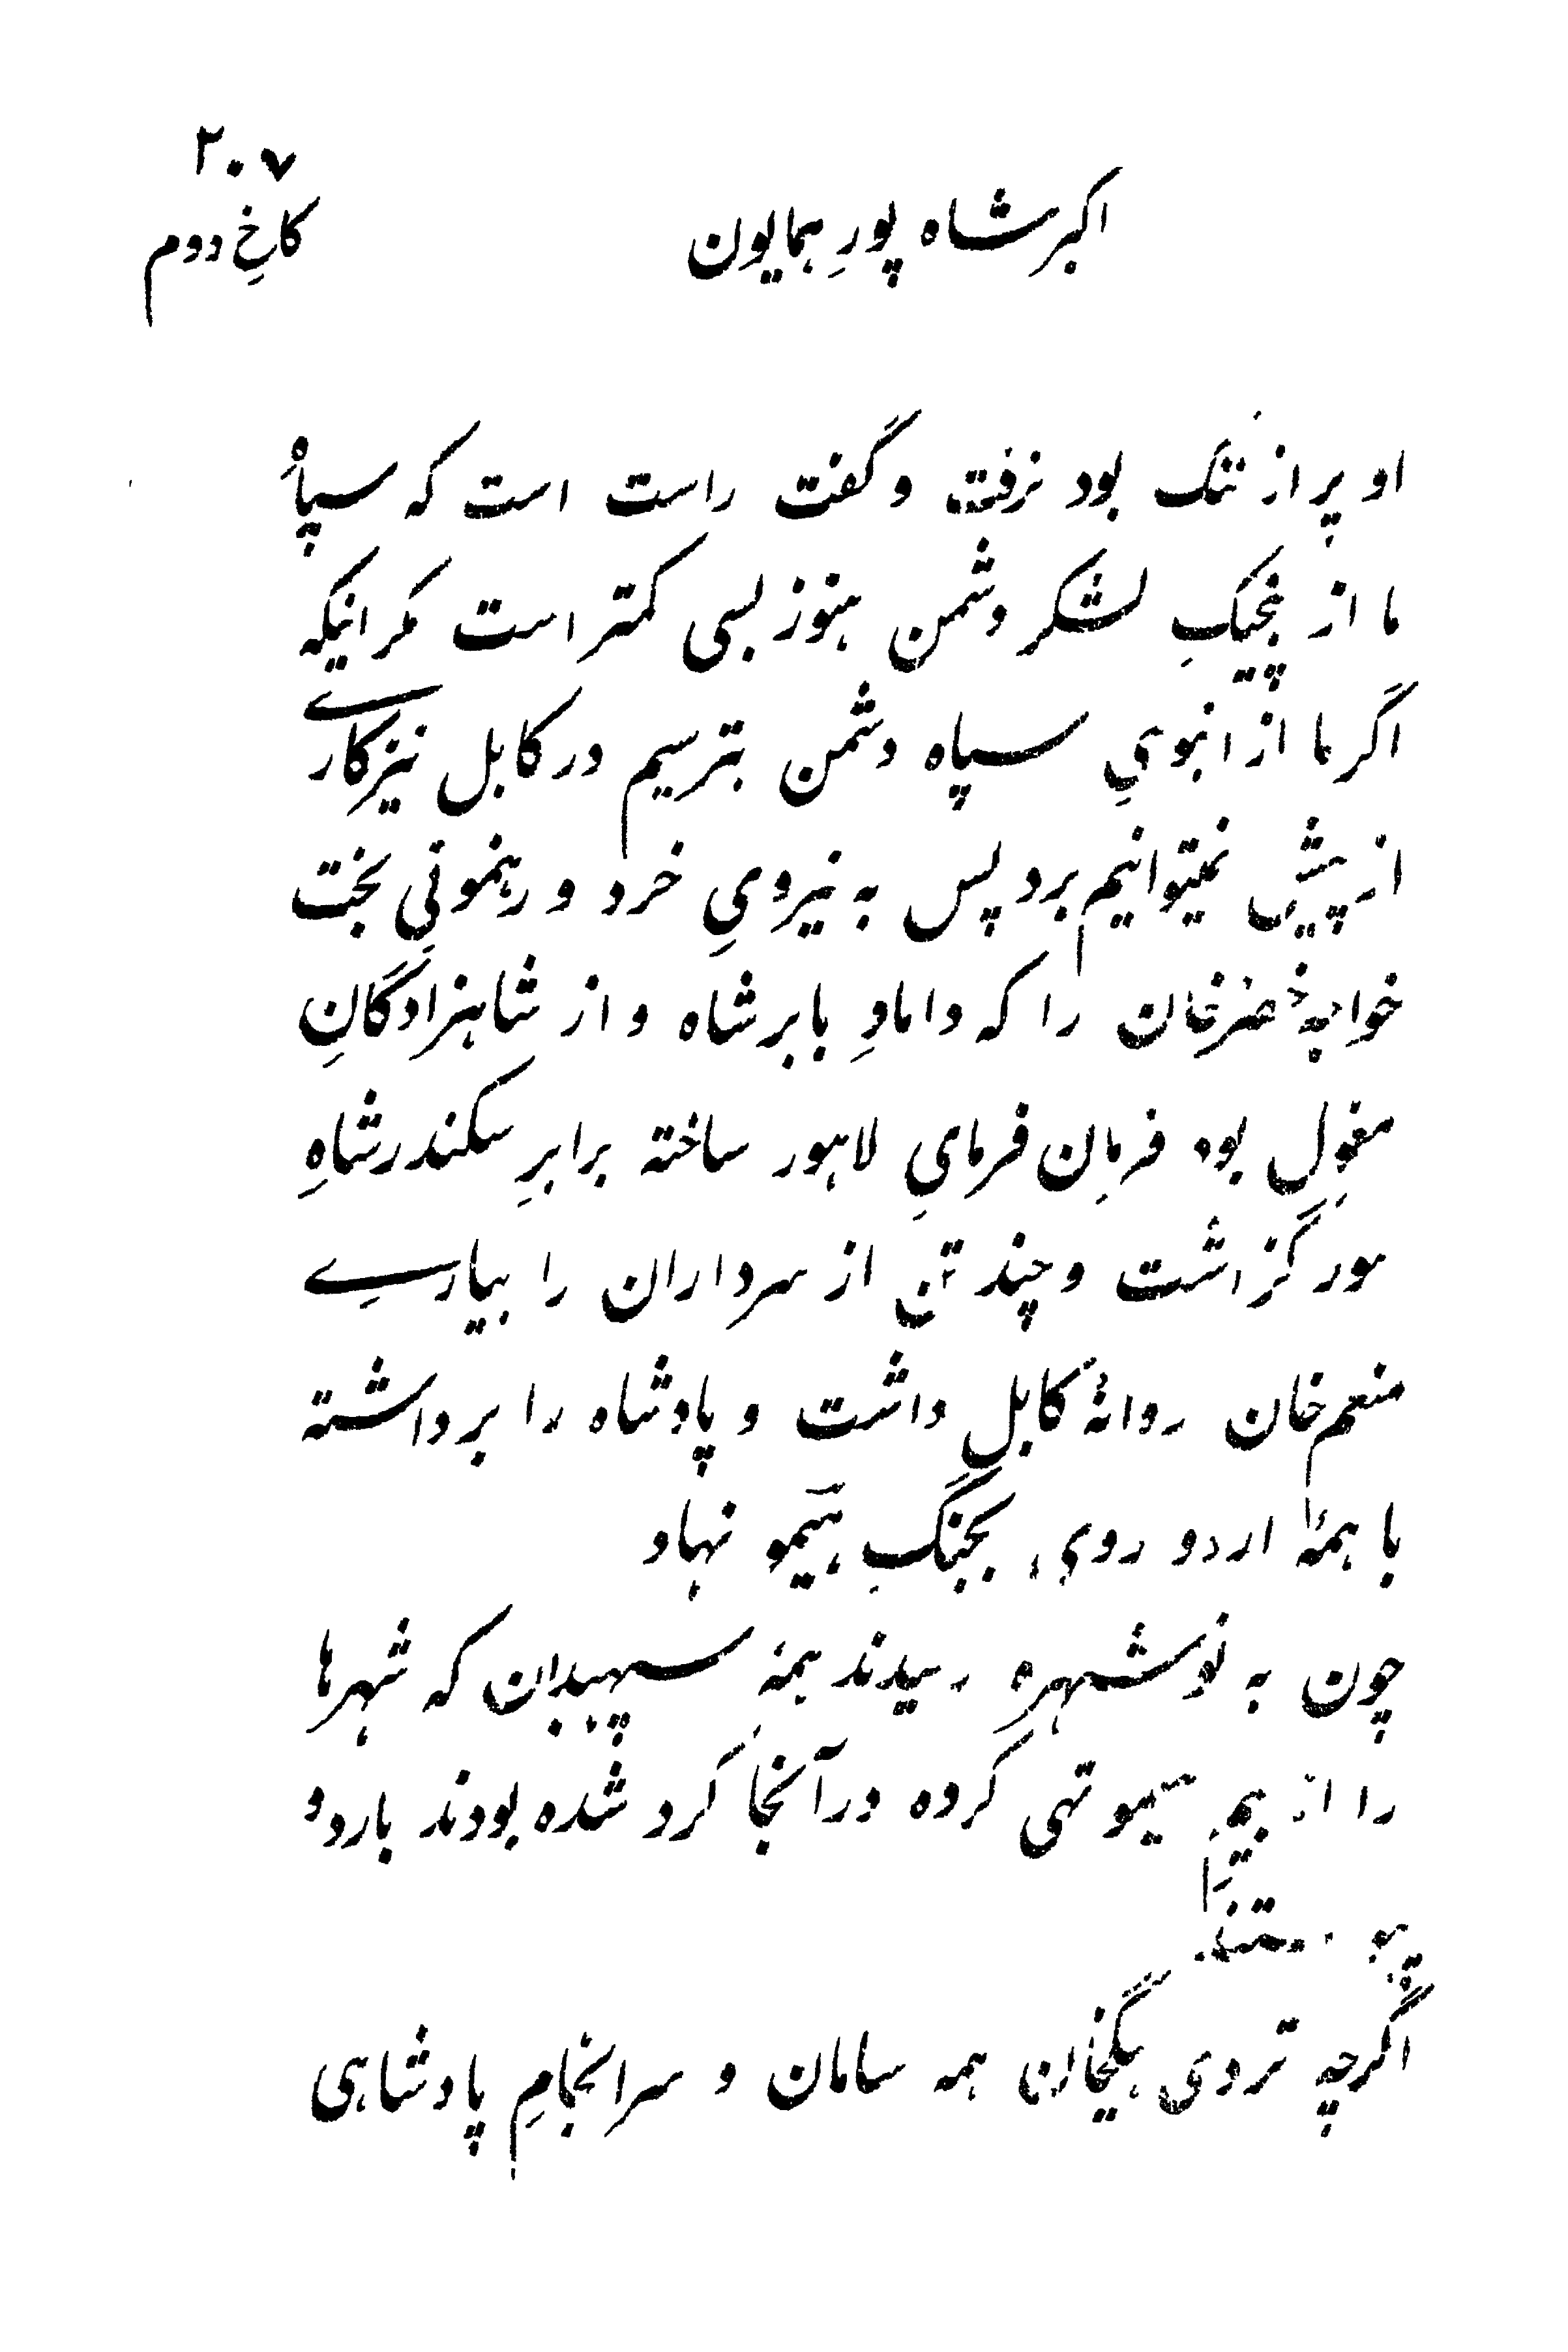 ۲۰۷
اکبرشاه پورِ همایون
کاخِ دوم
او پر از ننگ بود نرفت و گفت راست است که سپاهٔ
ما از پنجیکِ لشکر دشمن هنوز بسی کمتر است مگر اینکه
اگر ما از انبوهیِ سپاه دشمن بترسیم در کابل نیز کارے
از پیش نمیتوانیم برد پس به نیرویِ خرد و رهنمونیِ بخت
خواجهٔ خضرخان را که دامادِ بابرشاه و از شاهزادگانِ
مغول بود فرمان فرمایِ لاهور ساخته برابرِ سکندرشاهِ
سور گزاشت و چند تن از سرداران را بیارےِ
منعم خان روانهٔ کابل داشت و پادشاه را برداشته
با همهٔ اردو روی بجنگِ هیمو نهاد
چون به نوشهره رسیدند همهٔ سپهبدان که شهرها
را از بیمِ هیمو تهی کرده در آنجا گرد شده بودند باردو
اگرچه تردی بیگخان همه سامان و سرانجامِ پادشاهی